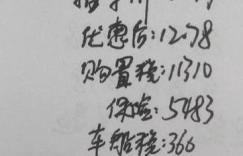 优惠后:12.78
购置税:11310
保险:5483
车船税:366